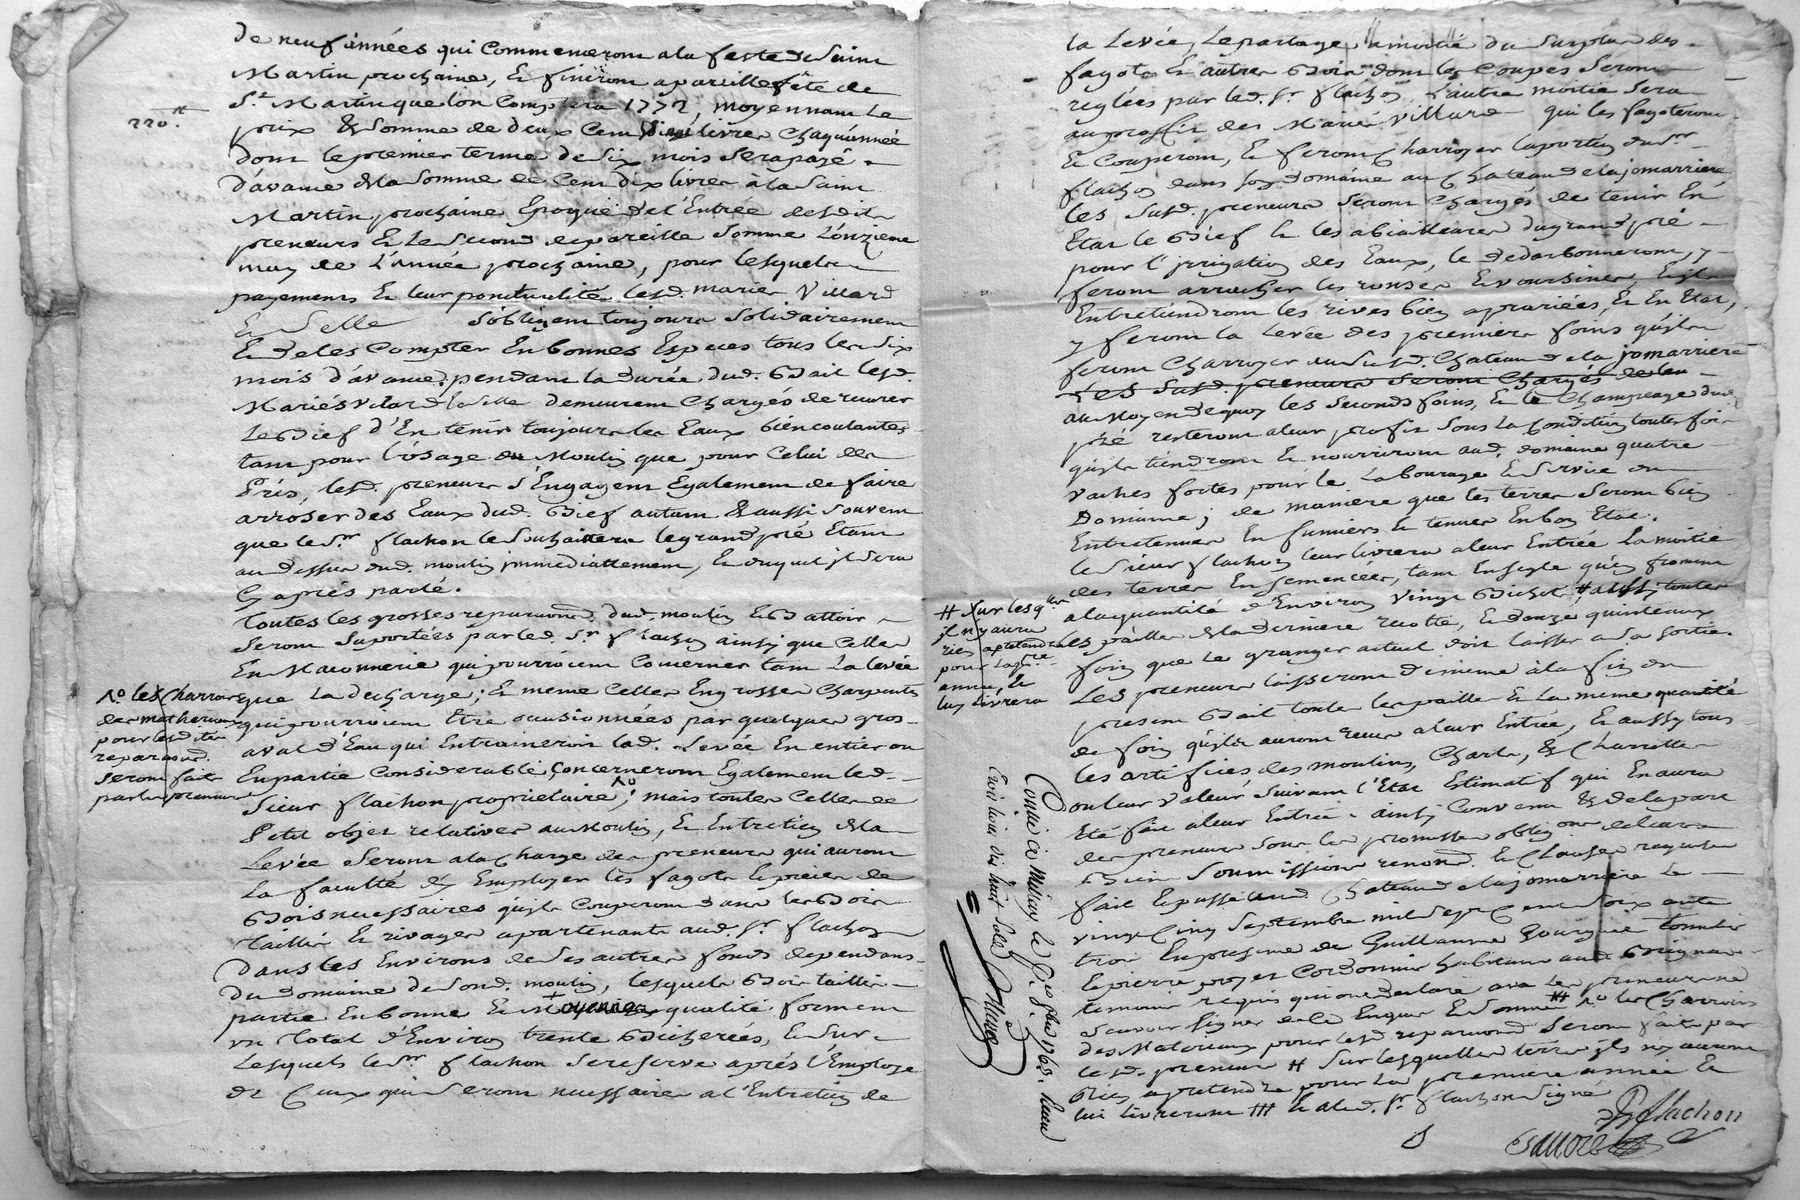 de neuf années qui Commenceront a la feste de Saint
Martin prochaine, & finiront a pareille fête de
St. Martin que l'on Comptera 1772 moyennant Le
220 ₶
prix & Somme de deux Cent vingt livres Chaque année
dont le premier terme de Six mois Sera payé
d'avance de la Somme de Cent dix livres à la Saint
Martin prochaine Epoque de l'Entrée desdits
preneurs & Le Second de pareille Somme L'onzieme
may de L'année prochaine, pour lesquels
payements & leur ponctualité lesd. mariés Villard
& Selle S'obligent toujours Solidairement
& de les Compter En bonnes Especes tous les Six
mois d'avance, pendant la durée dud. Bail lesd.
Mariés Vilard & Selle demeurent Chargés de recurer
Le Bief d'En tenir toujours les Eaux bien coulantes
tant pour l'usage du Moulin que pour Celui des
Prés, lesd. preneurs S'Engagent Egalement de faire
arroser des Eaux dud. Bief autant & aussi Souvent
que le Sr. flachon le Souhaittera le grand pré Etant
au dessus dud. moulin immediattement, & duquel il Sera
Cy après parlé.
Toutes les grosses reparations dud. moulin & Battoir
Seront Suportées par led. Sr. flachon ainsy que Celles
En Maconnerie qui pourroient Concerner tant La levée
que La decharge; & meme Celles En grosses Charpentes
qui pourroient Etre occasionnées par quelques gros
aval d'Eau qui Entraineroit lad. Levée En entier ou
En partie Considerable, Concerneront Egalement led.
Sieur flachon proprietaire; mais toutes Celles de
Petit objet relatives au Moulin, & Entretien de la
Levée Seront a la Charge des preneurs qui auront
La faculté d'y Employer les fagots & pieces de
Bois necessaires qu'ils Couperont dans les Bois
Taillis & rivages apartenants aud. Sr. flachon
dans les Environs de Ses autres fonds dependans
du Domaine de Sond. moulin, lesquels Bois taillis
partie En bonne & Moyenne qualité forment
un Total d'Environ trente Bicherées, & Sur
Lesquels le Sr. flachon Se reserve après l'Employe
de Ceux qui Seront necessaires a l'Entretien de
No les Charrois
des matheriaux
pour lesdites
reparaons
Seront faits
par les preneurs
la Levée, Le partage a moitié du Surplus des
fagots & autres Bois dont les Coupes Seront
reglées par led. Sr. flachon, L'autre moitié Sera
au proffit des Mariés Villard qui les fagoteront
& Couperont, & feront Charroyer la portion du Sr.
flachon dans Son Domaine au Chateau de la jomarriere
Les Susd. preneurs Seront Chargés de tenir En
Etat le Bief & les abiailleares du grand pré
pour l'jrrigation des Eaux, le dedarbonneront, y
feront arracher les ronses & voursines, & ils
Entretiendront les rives bien apropriées, & En Etat,
y feront la Levée des premiers foins qu'ils
feront Charroyer au Susd. Chateau de la jomarriere
Les Susd. preneurs Seront Chargés de leu
au Moyen dequoy les Seconds foins, & le Champeage dud.
pré resteront a leur profit Sous La Condition toutes fois
qu'ils tiendront & nourriront aud. domaine quatre
vaches fortes pour le Labourage & Service du
Domaine; de maniere que les terres Seront bien
Entretenues En fumiers & tenues En bon Etat.
le Sieur flachon leur livrera a leur Entrée La moitié
des terres En Semencées, tant En Seigle qu'en froment
a la quantité d'Environ vingt Bichets # aussy toutes
les pailles de la derniere recolte, & douze quinteaux
foin que Le granger actuel doit laisser a Sa Sortie.
Les preneurs laisseront de meme à la fin du
present Bail toutes les pailles & La meme quantité
de foin qu'ils auront recue a leur Entrée, & aussy tous
les artifices des moulins, Chars, & Charrettes
ou leur Valeur Suivant l'Etat Estimatif qui En aura
Eté fait a leur Entrée. ainsy Convenu & de la part
des preneurs Sous les promesses obligons de leurs
Biens Soumissions renonns. & Clauses requises
fait & passé aud. Chateau de la jomarriere Le
vingt Cinq Septembre mil Sept Cent Soix ante
trois En presence de Guillaume Gourguie tonnelier
& pierre proyet Cordonnier habitant aud. Brignais
temoins requis qui ont declaré avec les preneurs ne
Sçavoir Signer de ce Enquis & Sommés # No les Charrois
des Materiaux pour lesd. reparaons Seront faits par
lesd. preneurs # Sur lesquelles terres ils ny auront
Rien a pretendre pour La premiere année &
lui livreront ### & a led. Sr. flachon Signé
# Sur lesqles
il n'y aura
rien a pretendre
pour la pre
année, &
luy livrera
Controlé a Millery le 1763. Recu
trois livres dix huit Sols
flachon